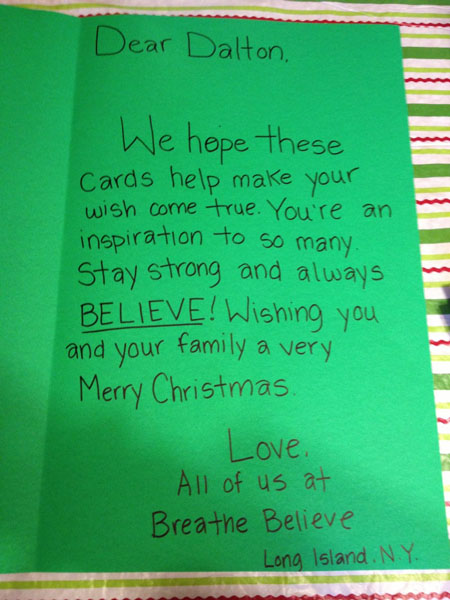 Dear Dalton.
We hope these
cards help make your
wish come true. You're an
inspiration to so many.
Stay strong and always
BELIEVE! Wishing you
and your family a very
Merry Christmas.
Love.
All of us at
Breathe Believe
Long Island. N.Y.